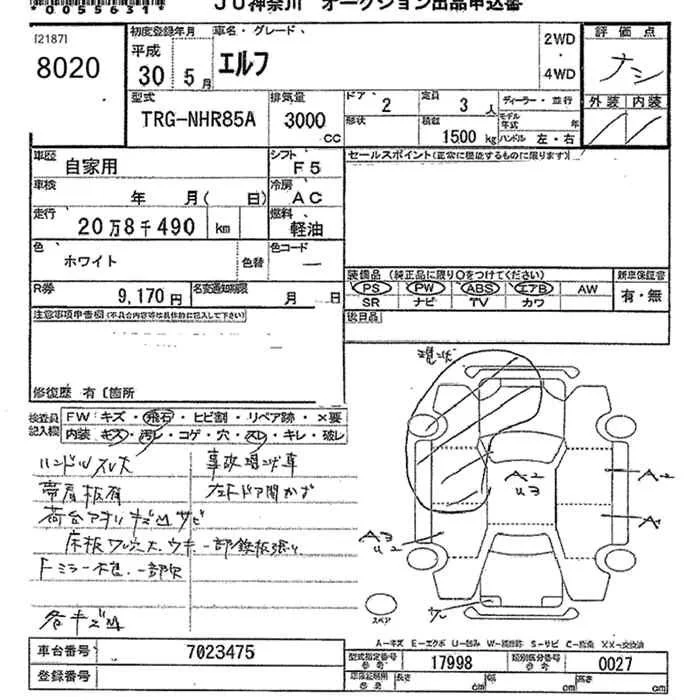 *0055631*
JU神奈川 オークション出品申込番
[2187]
8020
初度登録年月
平成
30 5月
車名・グレード
エルフ
2WD
・
4WD
評価点
ナシ
外装 内装
型式
TRG-NHR85A
排気量
3000
CC
ドア 2
定員 3 人
ディーラー・並行
形状
積載 1500 kg
モデル年式 年
ハンドル 左・右
車歴 自家用
シフト F5
セールスポイント(正常に機能するものに限ります)
車検 年 月( 日)
冷房 AC
走行 20万8千490 km
燃料 軽油
色 ホワイト 色替
色コード ―
装備品(純正品に限り○をつけてください)
新車保証書
PS PW ABS エアB AW
有・無
SR ナビ TV カワ
R券 9,170円
名変通知期限 月 日
注意事項申告欄(不具合内容等は具体的に記入して下さい)
後日品
修復歴 有〔箇所
現状
検査員記入欄
FW:キズ・飛石・ヒビ割・リペア跡・×要
内装 キズ・汚レ・コゲ・穴・スレ・キレ・破レ
ハンドルスレ大
事故現状車
左ドア開かず
荷台アオリキズ凹サビ
床板ワレ大、ウキ、一部鉄板張り
各キズ凹
A2
U3
A2
A
A3
U2
スペア
A-キズ E-エクボ U-凹み W-補修跡 S-サビ C-腐蝕 XX-交換済
車台番号 7023475
型式指定番号 参考 17998
類別区分番号 参考 0027
登録番号
車庫証明用 参考 長さ cm 幅 cm 高さ cm